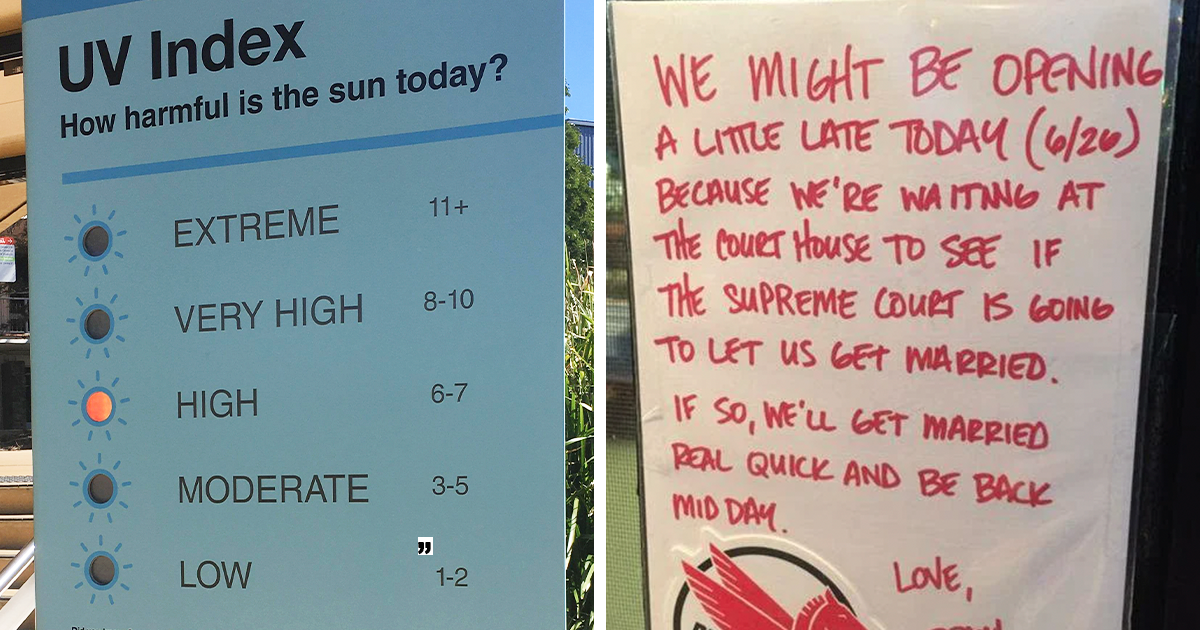 UV Index
How harmful is the sun today?
EXTREME 11+
VERY HIGH 8-10
HIGH 6-7
MODERATE 3-5
LOW 1-2
”
WE MIGHT BE OPENING
A LITTLE LATE TODAY (6/26)
BECAUSE WE'RE WAITING AT
THE COURT HOUSE TO SEE IF
THE SUPREME COURT IS GOING
TO LET US GET MARRIED.
IF SO, WE'LL GET MARRIED
REAL QUICK AND BE BACK
MID DAY.
LOVE,